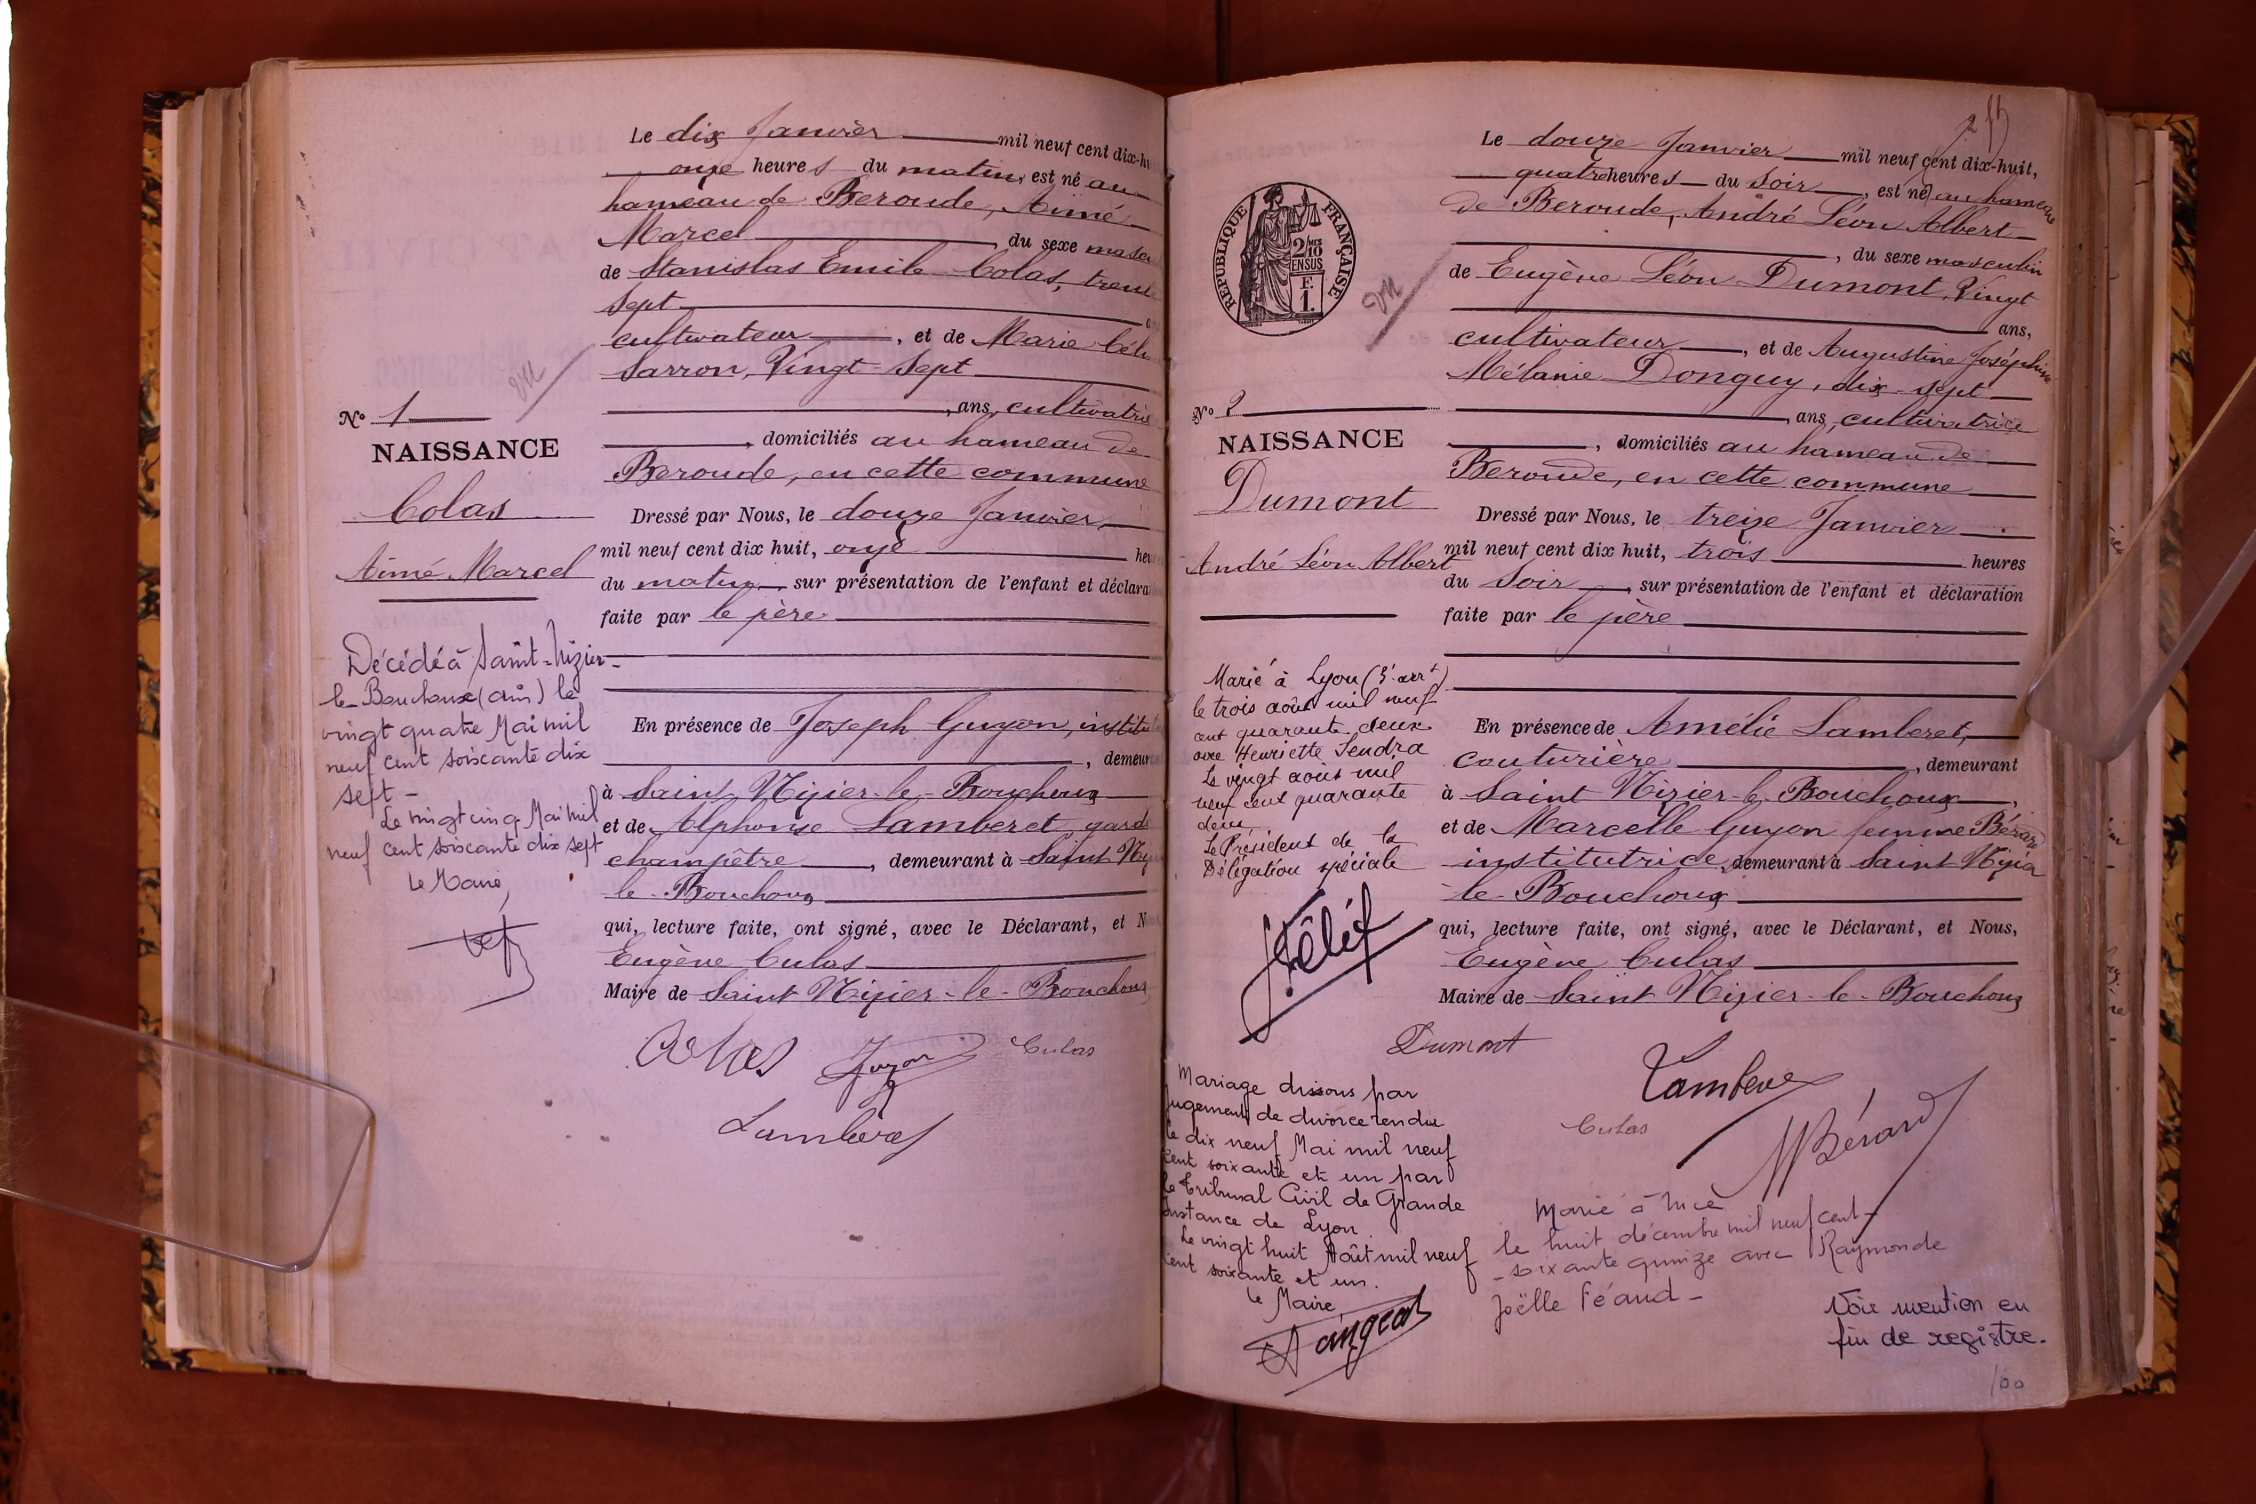 Le dix Janvier mil neuf cent dix-hu
onze heures du matin, est né au
hameau de Beroude, Aimé
Marcel, du sexe mascu
de Stanislas Emile Colas, trente
sept
cultivateur, et de Marie Céli
Sarron, Vingt-Sept
ans, cultivatric
N° 1
NAISSANCE
Colas
Aimé Marcel
domiciliés au hameau de
Beroude, en cette commune
Dressé par Nous, le douze Janvier
mil neuf cent dix huit, onze heu
du matin, sur présentation de l'enfant et déclara
faite par le père
Décédé à Saint-Nizier-
le-Bouchoux (ain) le
vingt quatre Mai mil
neuf cent soixante dix
sept -
Le vingt cinq Mai mil
neuf cent soixante dix sept
Le Maire,
En présence de Joseph Guyon, institu
, demeur
à Saint-Nizier-le-Bouchoux
et de Alphonse Lamberet, garde
champêtre, demeurant à Saint Niz
le-Bouchoux
qui, lecture faite, ont signé, avec le Déclarant, et N
Eugène Culas
Maire de Saint Nizier-le-Bouchoux
Colas Guyon Culas
Lamberet
Le douze Janvier mil neuf cent dix-huit,
quatre heures du Soir, est né au hameau
de Beroude, André Léon Albert
, du sexe masculin
de Eugène Léon Dumont, Vingt
ans,
cultivateur, et de Augustine Joséphine
Mélanie Donguy, dix-sept
ans, cultivatrice
RÉPUBLIQUE FRANÇAISE
2/10
EN SUS
F.
1.
N° 2
NAISSANCE
Dumont
André Léon Albert
, domiciliés au hameau de
Beroude, en cette commune
Dressé par Nous, le treize Janvier
mil neuf cent dix huit, trois heures
du Soir, sur présentation de l'enfant et déclaration
faite par le père
Marié à Lyon (3e arrt)
le trois août mil neuf
cent quarante deux
avec Henriette Sendra
Le vingt août mil
neuf cent quarante
deux
Le Président de la
Délégation spéciale
En présence de Amélie Lamberet,
couturière, demeurant
à Saint Nizier-le-Bouchoux,
et de Marcelle Guyon femme Bérard
institutrice, demeurant à Saint Nizier
le-Bouchoux
qui, lecture faite, ont signé, avec le Déclarant, et Nous,
Eugène Culas
Maire de Saint Nizier-le-Bouchoux
Dumont Lamberet
Culas MBérard
Mariage dissous par
jugement de divorce rendu
le dix neuf Mai mil neuf
cent soixante et un par
le Tribunal Civil de Grande
Instance de Lyon.
Le vingt huit Août mil neuf
cent soixante et un.
Le Maire,
Marié à Nice
le huit décembre mil neuf cent-
-soixante quinze avec Raymonde
Joëlle Féaud -
Voir mention en
fin de registre.
100